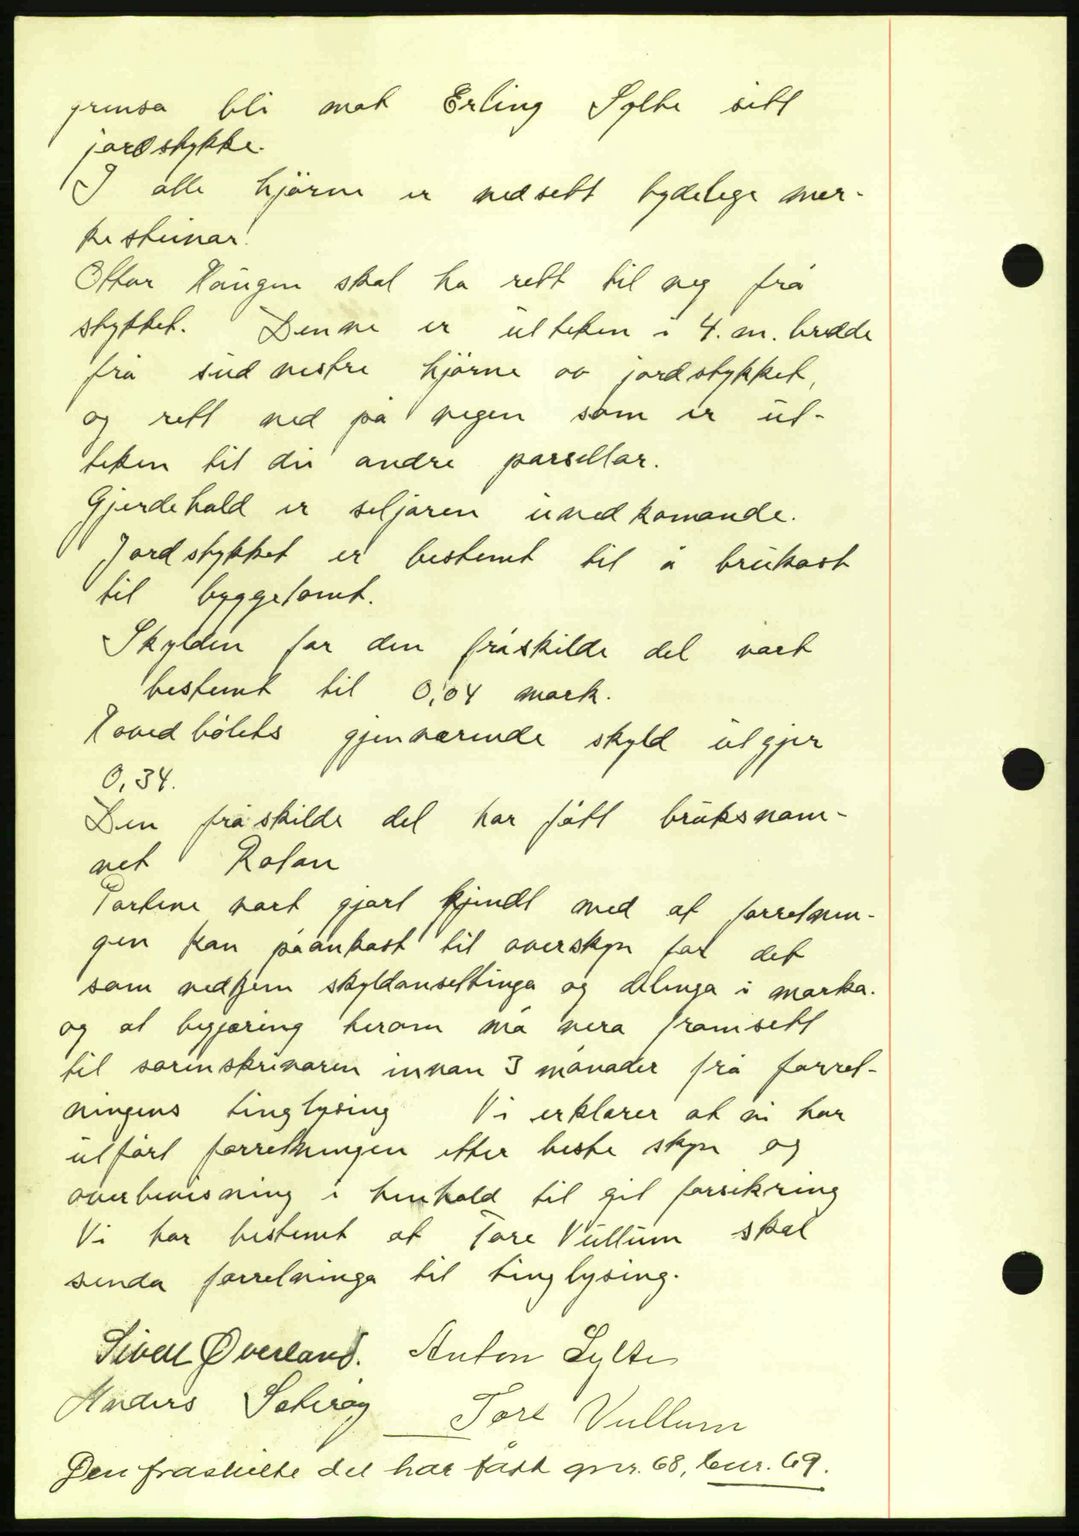 grensa bli mot Erling Sylte sitt
jordstykke.
I alle hjörne er nedsett tydelege mer-
kesteinar.
Ottar Haugen skal ha rett til veg frå
stykket. Denne er utteken i 4. m. bredde
frå sud vestre hjörne av jordstykket,
og rett ned på vegen som er ut-
teken til dei andre parsellar.
Gjerdehald er seljaren uvedkomande.
Jordstykket er bestemt til å brukast
til byggetomt.
Skylden for den fråskilde del vart
bestemt til 0,04 mark.
Hovedbölets gjenværende skyld utgjer
0,34.
Den fråskilde del har fått bruksnam-
net Rotan
Partene vart gjort kjendt med at forretnin-
gen kan påankast til overskyn for det
som vedkjem skyldansettinga og delinga i marka.
og at begjæring herom må vera framsett
til sorenskrivaren innan 3 månader frå forret-
ningens tinglysing Vi erklærer at vi har
utfört forretningen etter beste skyn og
overbevisning i henhold til git forsikring
Vi har bestemt at Tore Vullum skal
senda forretninga til tinglysing.
Sivert Øverland. Anton Sylte
Anders Tore Vullum
Den fraskilte del har fått gnr. 68, bnr. 69.